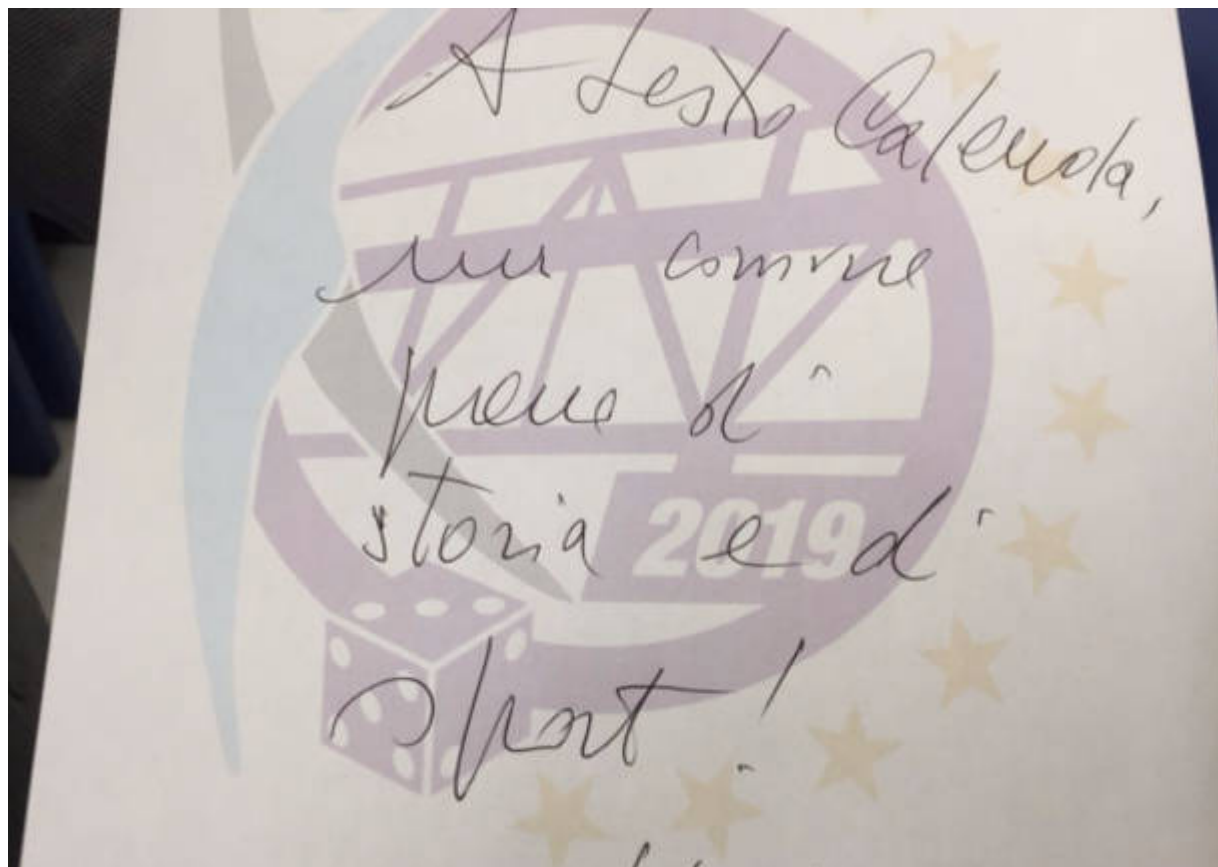 A Sesto Calende,
un comune
pieno di
storia e di
sport!
2019